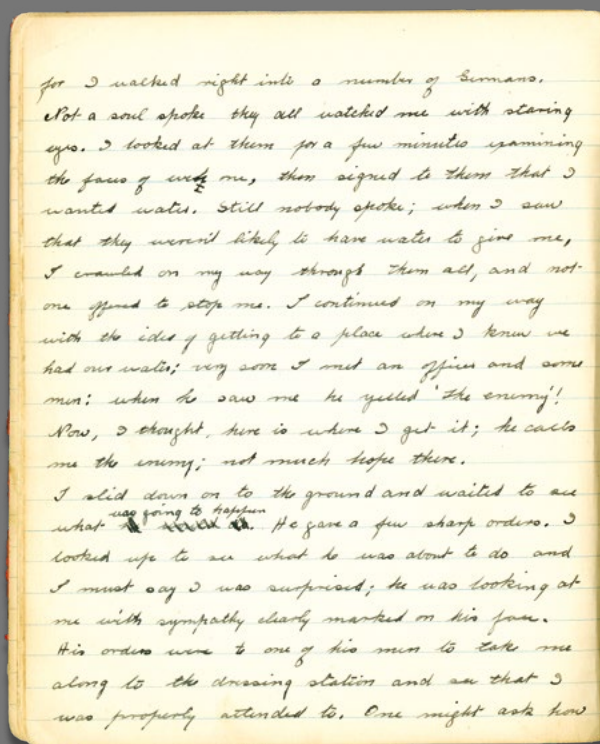 for I walked right into a number of Germans.
Not a soul spoke they all watched me with staring
eyes. I looked at them for a few minutes examining
the faces of each one, then signed to them that I
wanted water. Still nobody spoke; when I saw
that they weren't likely to have water to give me,
I crawled on my way through them all, and not
one offered to stop me. I continued on my way
with the idea of getting to a place where I knew we
had our water; very soon I met an officer and some
men: when he saw me he yelled 'the enemy'!
Now, I thought, here is where I get it; he calls
me the enemy; not much hope there.
I slid down on to the ground and waited to see
what was going to happen. He gave a few sharp orders. I
looked up to see what he was about to do and
I must say I was surprised; he was looking at
me with sympathy clearly marked on his face.
His orders were to one of his men to take me
along to the dressing station and see that I
was properly attended to. One might ask how